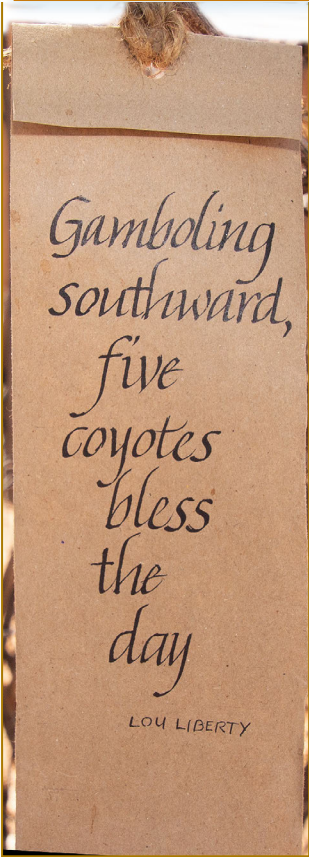 Gamboling
southward,
five
coyotes
bless
the
day
LOU LIBERTY